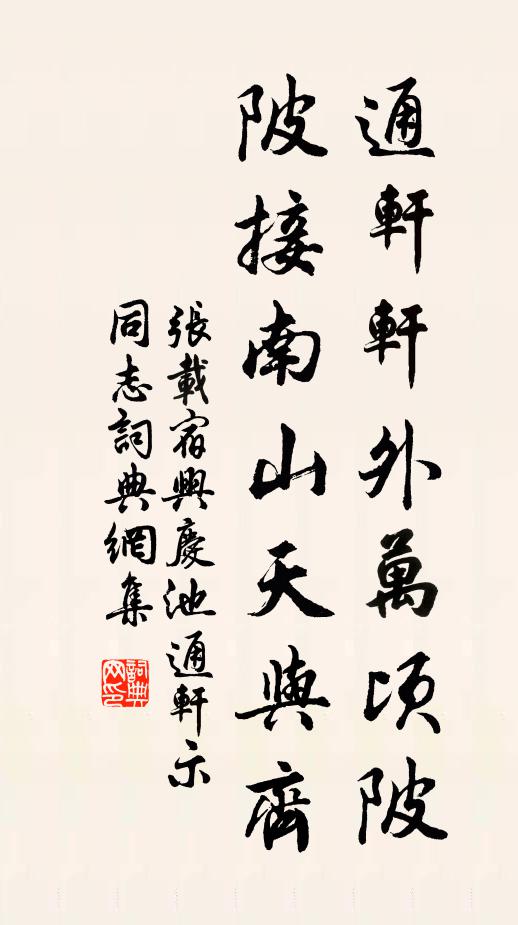 通軒軒外萬頃陂
陂接南山天與齊
張載宿興慶池通軒示
同志詞典網集
詞典网印